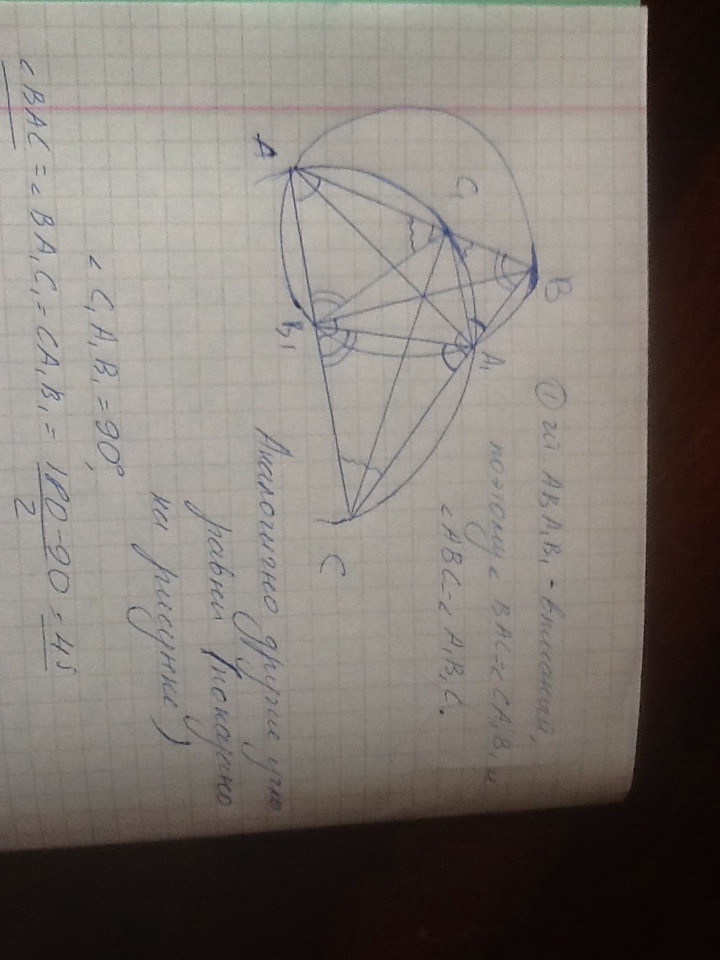 ① ш ABA₁B₁ - вписанный,
поэтому ∠ BAC = ∠ CA₁B₁ и
∠ ABC = ∠ A₁B₁C.
Аналогично другие углы
равны (показано
на рисунке)
∠ C₁A₁B₁ = 90°,
∠ BAC = ∠ BA₁C₁ = CA₁B₁ = 180-90 = 45
2
A
C₁
B
A₁
B₁
C